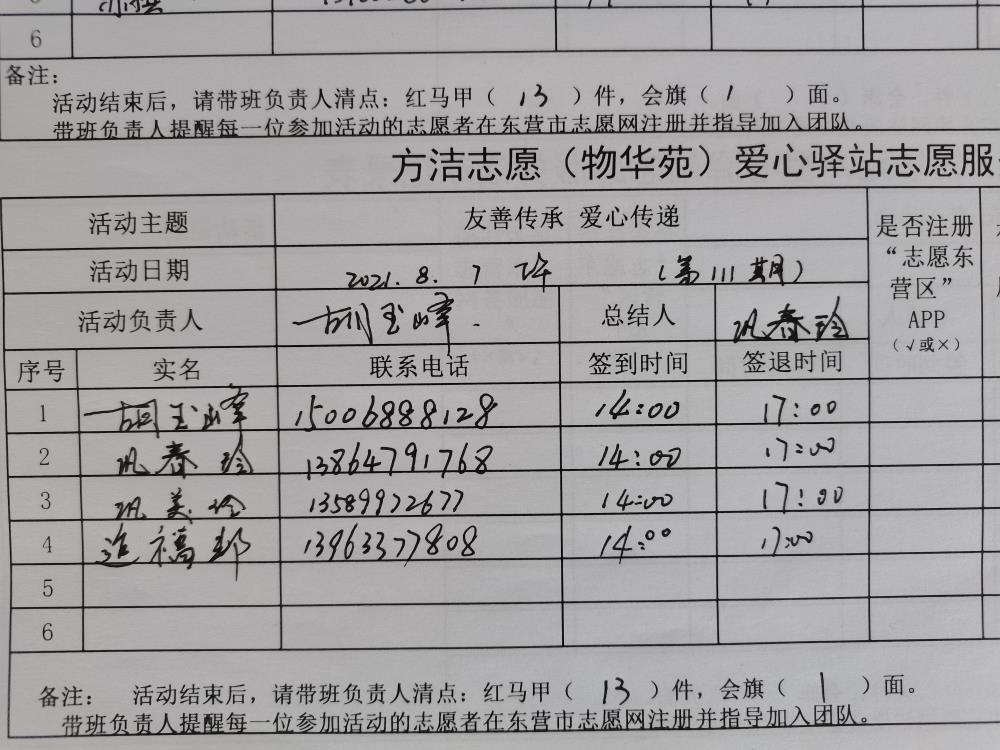 6
备注：
活动结束后，请带班负责人清点：红马甲（ 13 ）件，会旗（ 1 ）面。
带班负责人提醒每一位参加活动的志愿者在东营市志愿网注册并指导加入团队。
方洁志愿（物华苑）爱心驿站志愿服
活动主题 友善传承 爱心传递 是否注册“志愿东营区”APP（√或×）
活动日期 2021.8.7 下午 （第111期）
活动负责人 胡玉峰 总结人 巩春玲
序号 实名 联系电话 签到时间 签退时间
1 胡玉峰 15006888128 14:00 17:00
2 巩春玲 13864791768 14:00 17:00
3 巩美玲 13589972677 14:00 17:00
4 福邦 13963377808 14:00 17:00
5
6
备注： 活动结束后，请带班负责人清点：红马甲（ 13 ）件，会旗（ 1 ）面。
带班负责人提醒每一位参加活动的志愿者在东营市志愿网注册并指导加入团队。